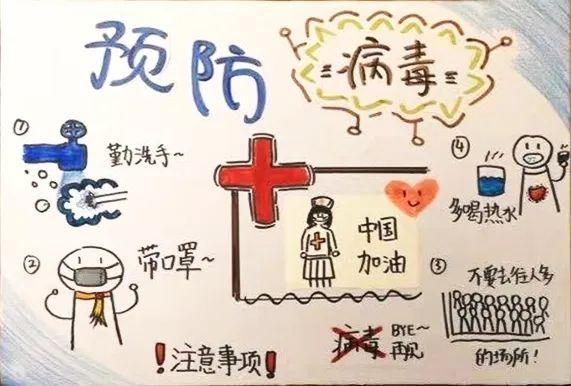 预防
病毒
① 勤洗手~
② 带口罩~
中国
加油
④
多喝热水
③
不要去往人多
的场所!
!注意事项!
病毒 BYE~
再见